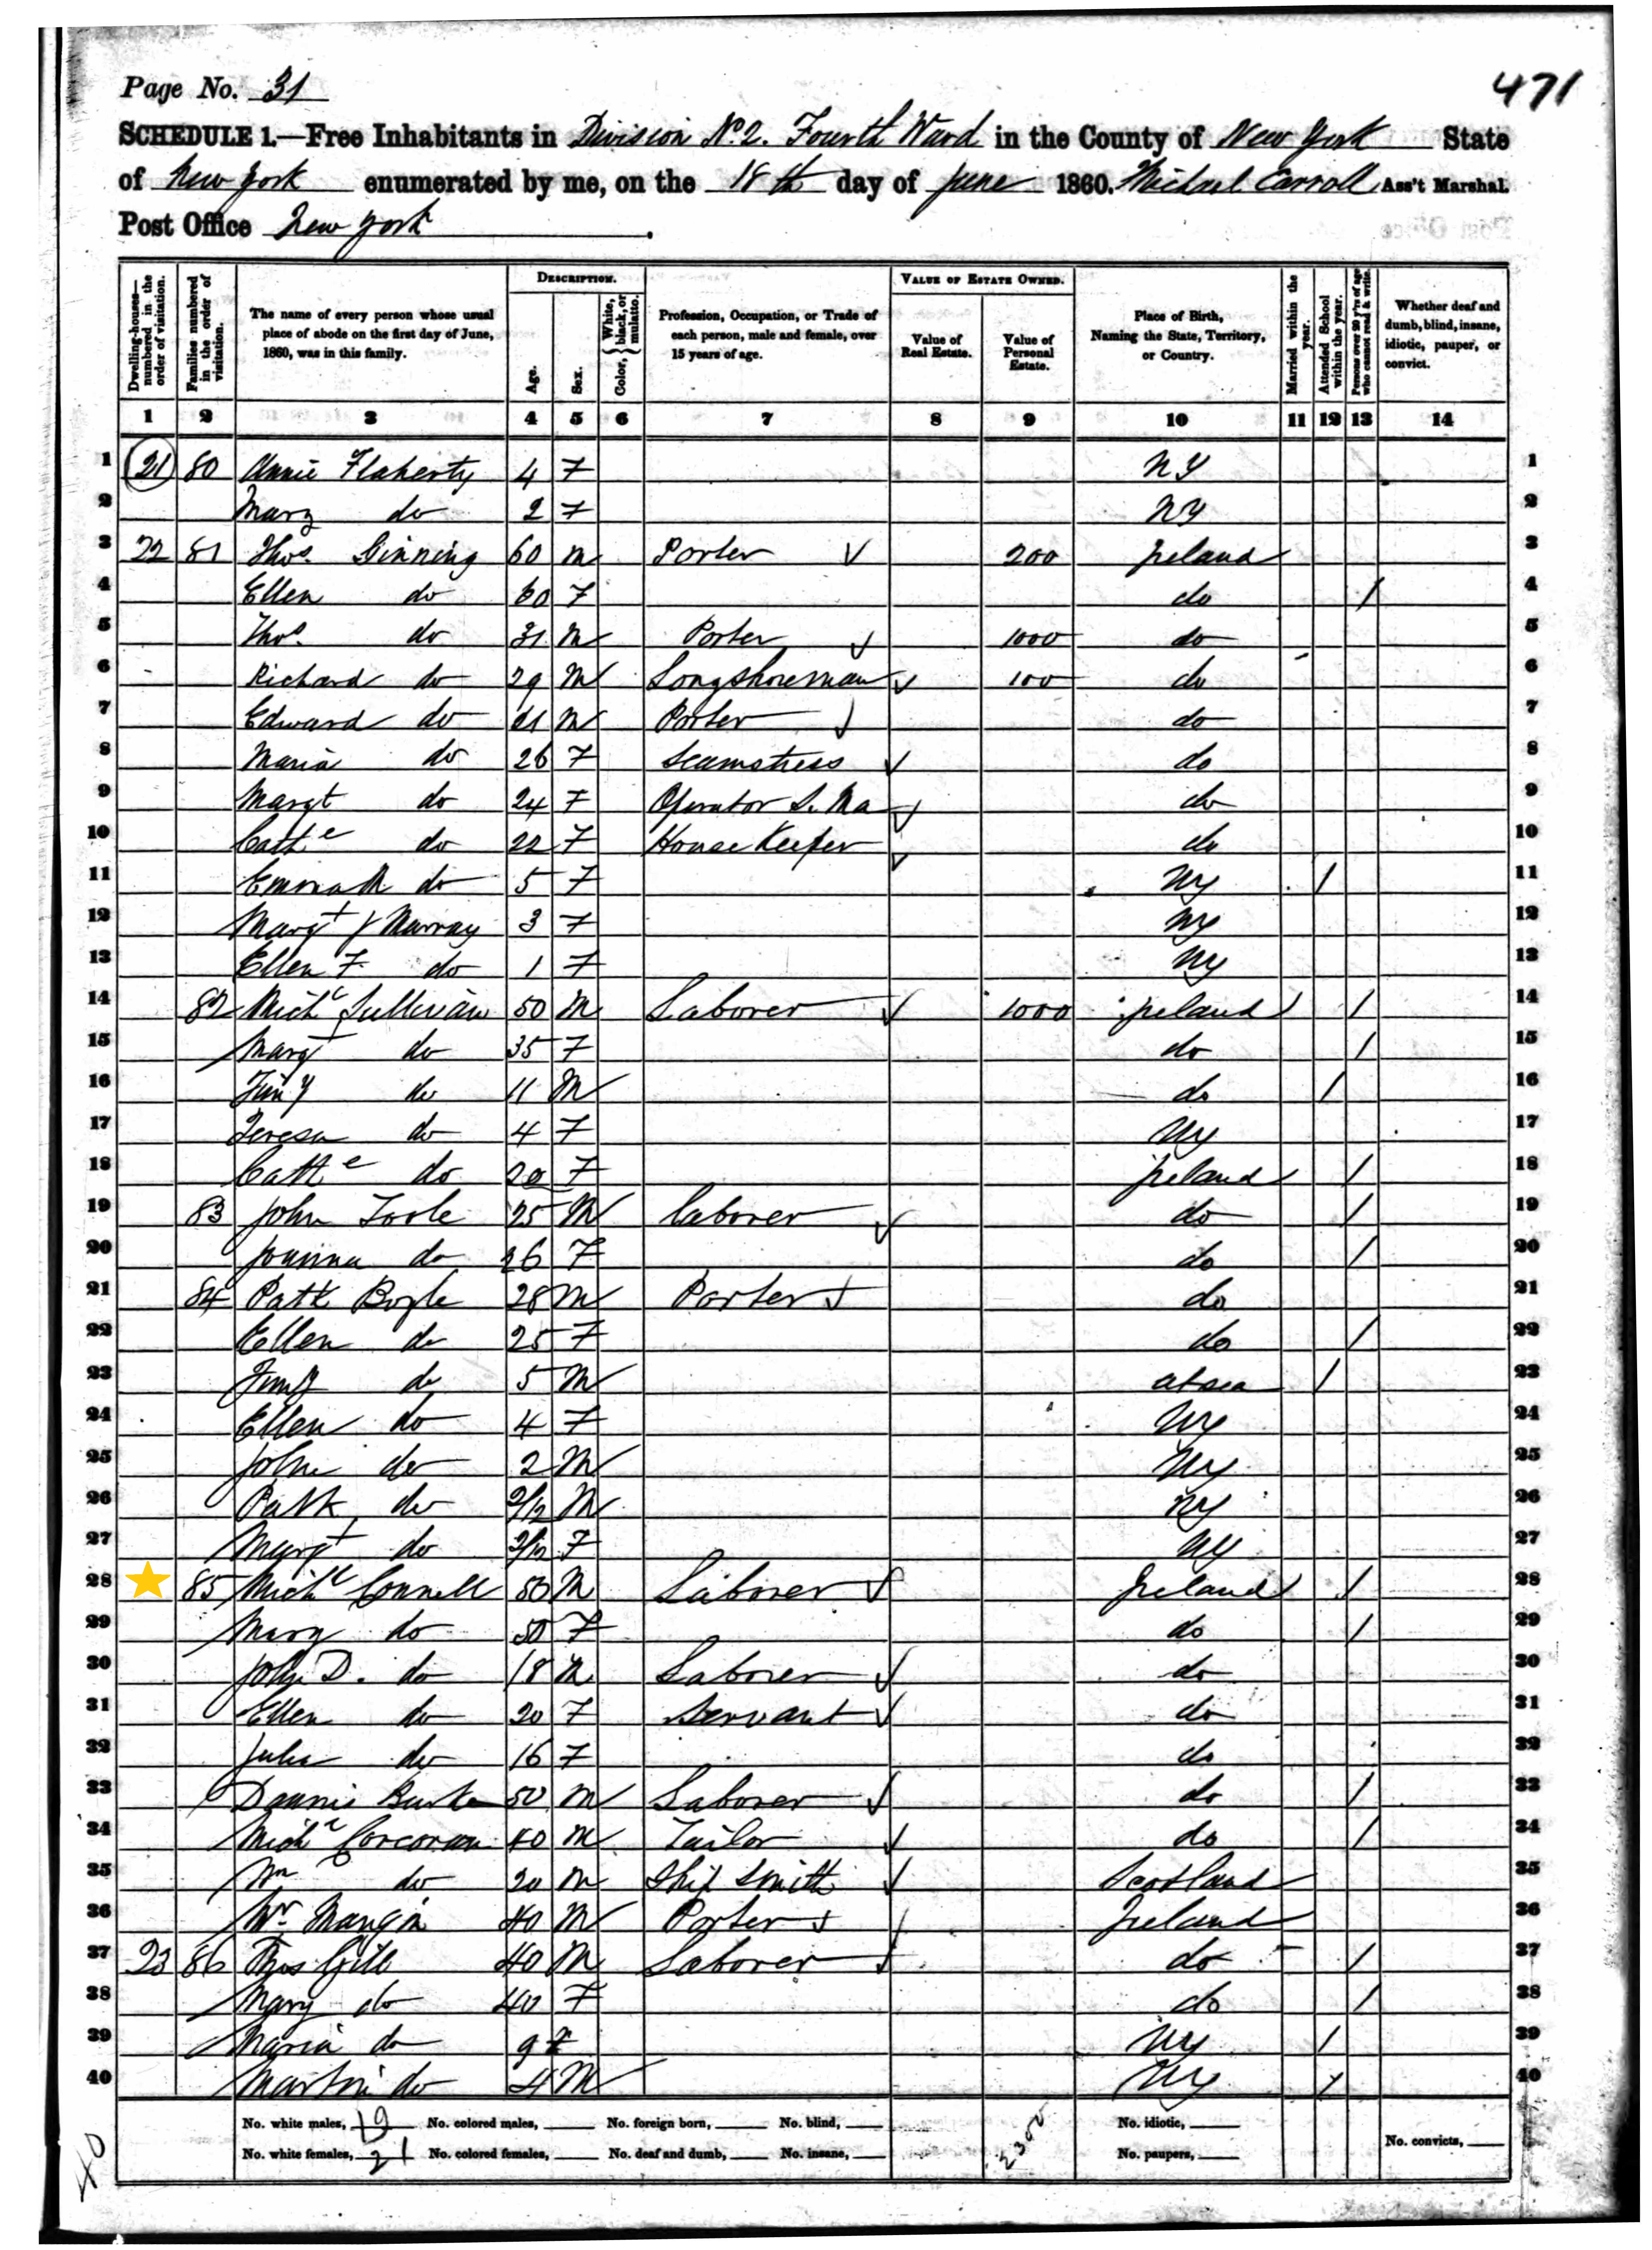 Page No. 31
471
SCHEDULE 1.—Free Inhabitants in Division No. 2. Fourth Ward in the County of New York State
of New York enumerated by me, on the 18th day of June 1860. Michael Carroll Ass't Marshal.
Post Office New York.
DESCRIPTION. VALUE OF ESTATE OWNED.
Dwelling-houses—numbered in the order of visitation. Families numbered in the order of visitation. The name of every person whose usual place of abode on the first day of June, 1860, was in this family. Age. Sex. Color, White, black, or mulatto. Profession, Occupation, or Trade of each person, male and female, over 15 years of age. Value of Real Estate. Value of Personal Estate. Place of Birth, Naming the State, Territory, or Country. Married within the year. Attended School within the year. Persons over 20 y'rs of age who cannot read & write. Whether deaf and dumb, blind, insane, idiotic, pauper, or convict.
1 2 3 4 5 6 7 8 9 10 11 12 13 14
1 21 80 Annie Flaherty 4 F NY 1
2 Mary do 2 F NY 2
3 22 81 Thos. Ginning 60 M Porter 200 Ireland 3
4 Ellen do 60 F do / 4
5 Thos. do 31 M Porter 1000 do 5
6 Richard do 29 M Longshoreman 100 do 6
7 Edward do 21 M Porter do 7
8 Maria do 26 F Seamstress do 8
9 Margt do 24 F Operator S. Ma do 9
10 Cathe do 22 F House Keeper do 10
11 Emma do 5 F NY / 11
12 Margt J Murray 3 F NY 12
13 Ellen F. do 1 F NY 13
14 82 Michl Sullivan 50 M Laborer 1000 Ireland / 14
15 Margt do 35 F do / 15
16 Timy do 11 M do / 16
17 Teresa do 4 F NY 17
18 Cathe do 20 F Ireland / 18
19 83 John Toole 25 M Laborer do / 19
20 Joanna do 26 F do / 20
21 84 Patk Boyle 28 M Porter do 21
22 Ellen do 25 F do / 22
23 Timy do 5 M at sea / 23
24 Ellen do 4 F NY 24
25 John do 2 M NY 25
26 Patk do 2/12 M NY 26
27 Margt do 2/12 F NY 27
28 85 Michl Connell 50 M Laborer Ireland / 28
29 Mary do 50 F do / 29
30 John D. do 18 M Laborer do 30
31 Ellen do 20 F Servant do 31
32 Julia do 16 F do 32
33 Dennis Burke 50 M Laborer do / 33
34 Michl Corcoran 40 M Tailor do / 34
35 Wm do 20 M Ship Smith Scotland 35
36 Mangin 40 M Porter Ireland 36
37 23 86 Thos Gill 40 M Laborer do / 37
38 Mary do 40 F do / 38
39 Maria do 9 F NY / 39
40 Martin do 4 M NY / 40
No. white males, 19 No. colored males, No. foreign born, No. blind, 2300 No. idiotic,
No. white females, 21 No. colored females, No. deaf and dumb, No. insane, No. paupers, No. convicts,
40